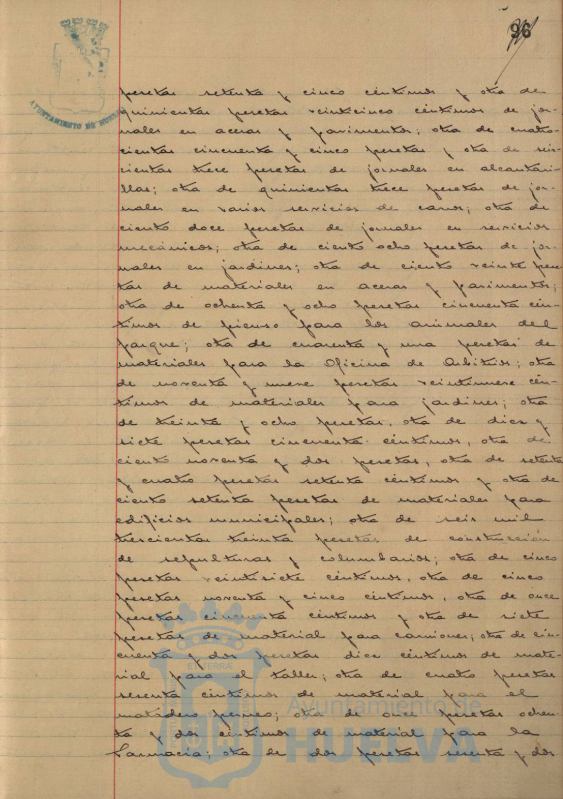 96
AYUNTAMIENTO DE HUELVA
pesetas setenta y cinco céntimos y otra de
quinientas pesetas veinticinco céntimos de jor-
nales en aceras y pavimentos; otra de cuatro-
cientas cincuenta y cinco pesetas y otra de seis-
cientas trece pesetas de jornales en alcantari-
llas; otra de quinientas trece pesetas de jor-
nales en varios servicios de carros; otra de
ciento doce pesetas de jornales en servicios
mecánicos; otra de ciento ocho pesetas de jor-
nales en jardines; otra de ciento veinte pese-
tas de materiales en aceras y pavimentos;
otra de ochenta y ocho pesetas cincuenta cén-
timos de pienso para los animales del
parque; otra de cuarenta y una pesetas de
materiales para la Oficina de Arbitrios; otra
de noventa y nueve pesetas veintinueve cén-
timos de materiales para jardines; otra
de treinta y ocho pesetas, otra de diez y
siete pesetas cincuenta céntimos, otra de
ciento noventa y dos pesetas, otra de setenta
y cuatro pesetas setenta céntimos y otra de
ciento setenta pesetas de materiales para
edificios municipales; otra de seis mil
trescientas treinta pesetas de construcción
de sepulturas y columbarios; otra de cinco
pesetas veintisiete céntimos, otra de cinco
pesetas noventa y cinco céntimos, otra de once
pesetas cincuenta céntimos y otra de siete
pesetas de material para camiones; otra de cin-
cuenta y dos pesetas diez céntimos de mate-
rial para el taller; otra de cuatro pesetas
sesenta céntimos de material para el
matadero; otra de once pesetas ochen-
ta y dos céntimos de material para la
Farmacia; otra de dos pesetas sesenta y dos
Ayuntamiento de
HUELVA